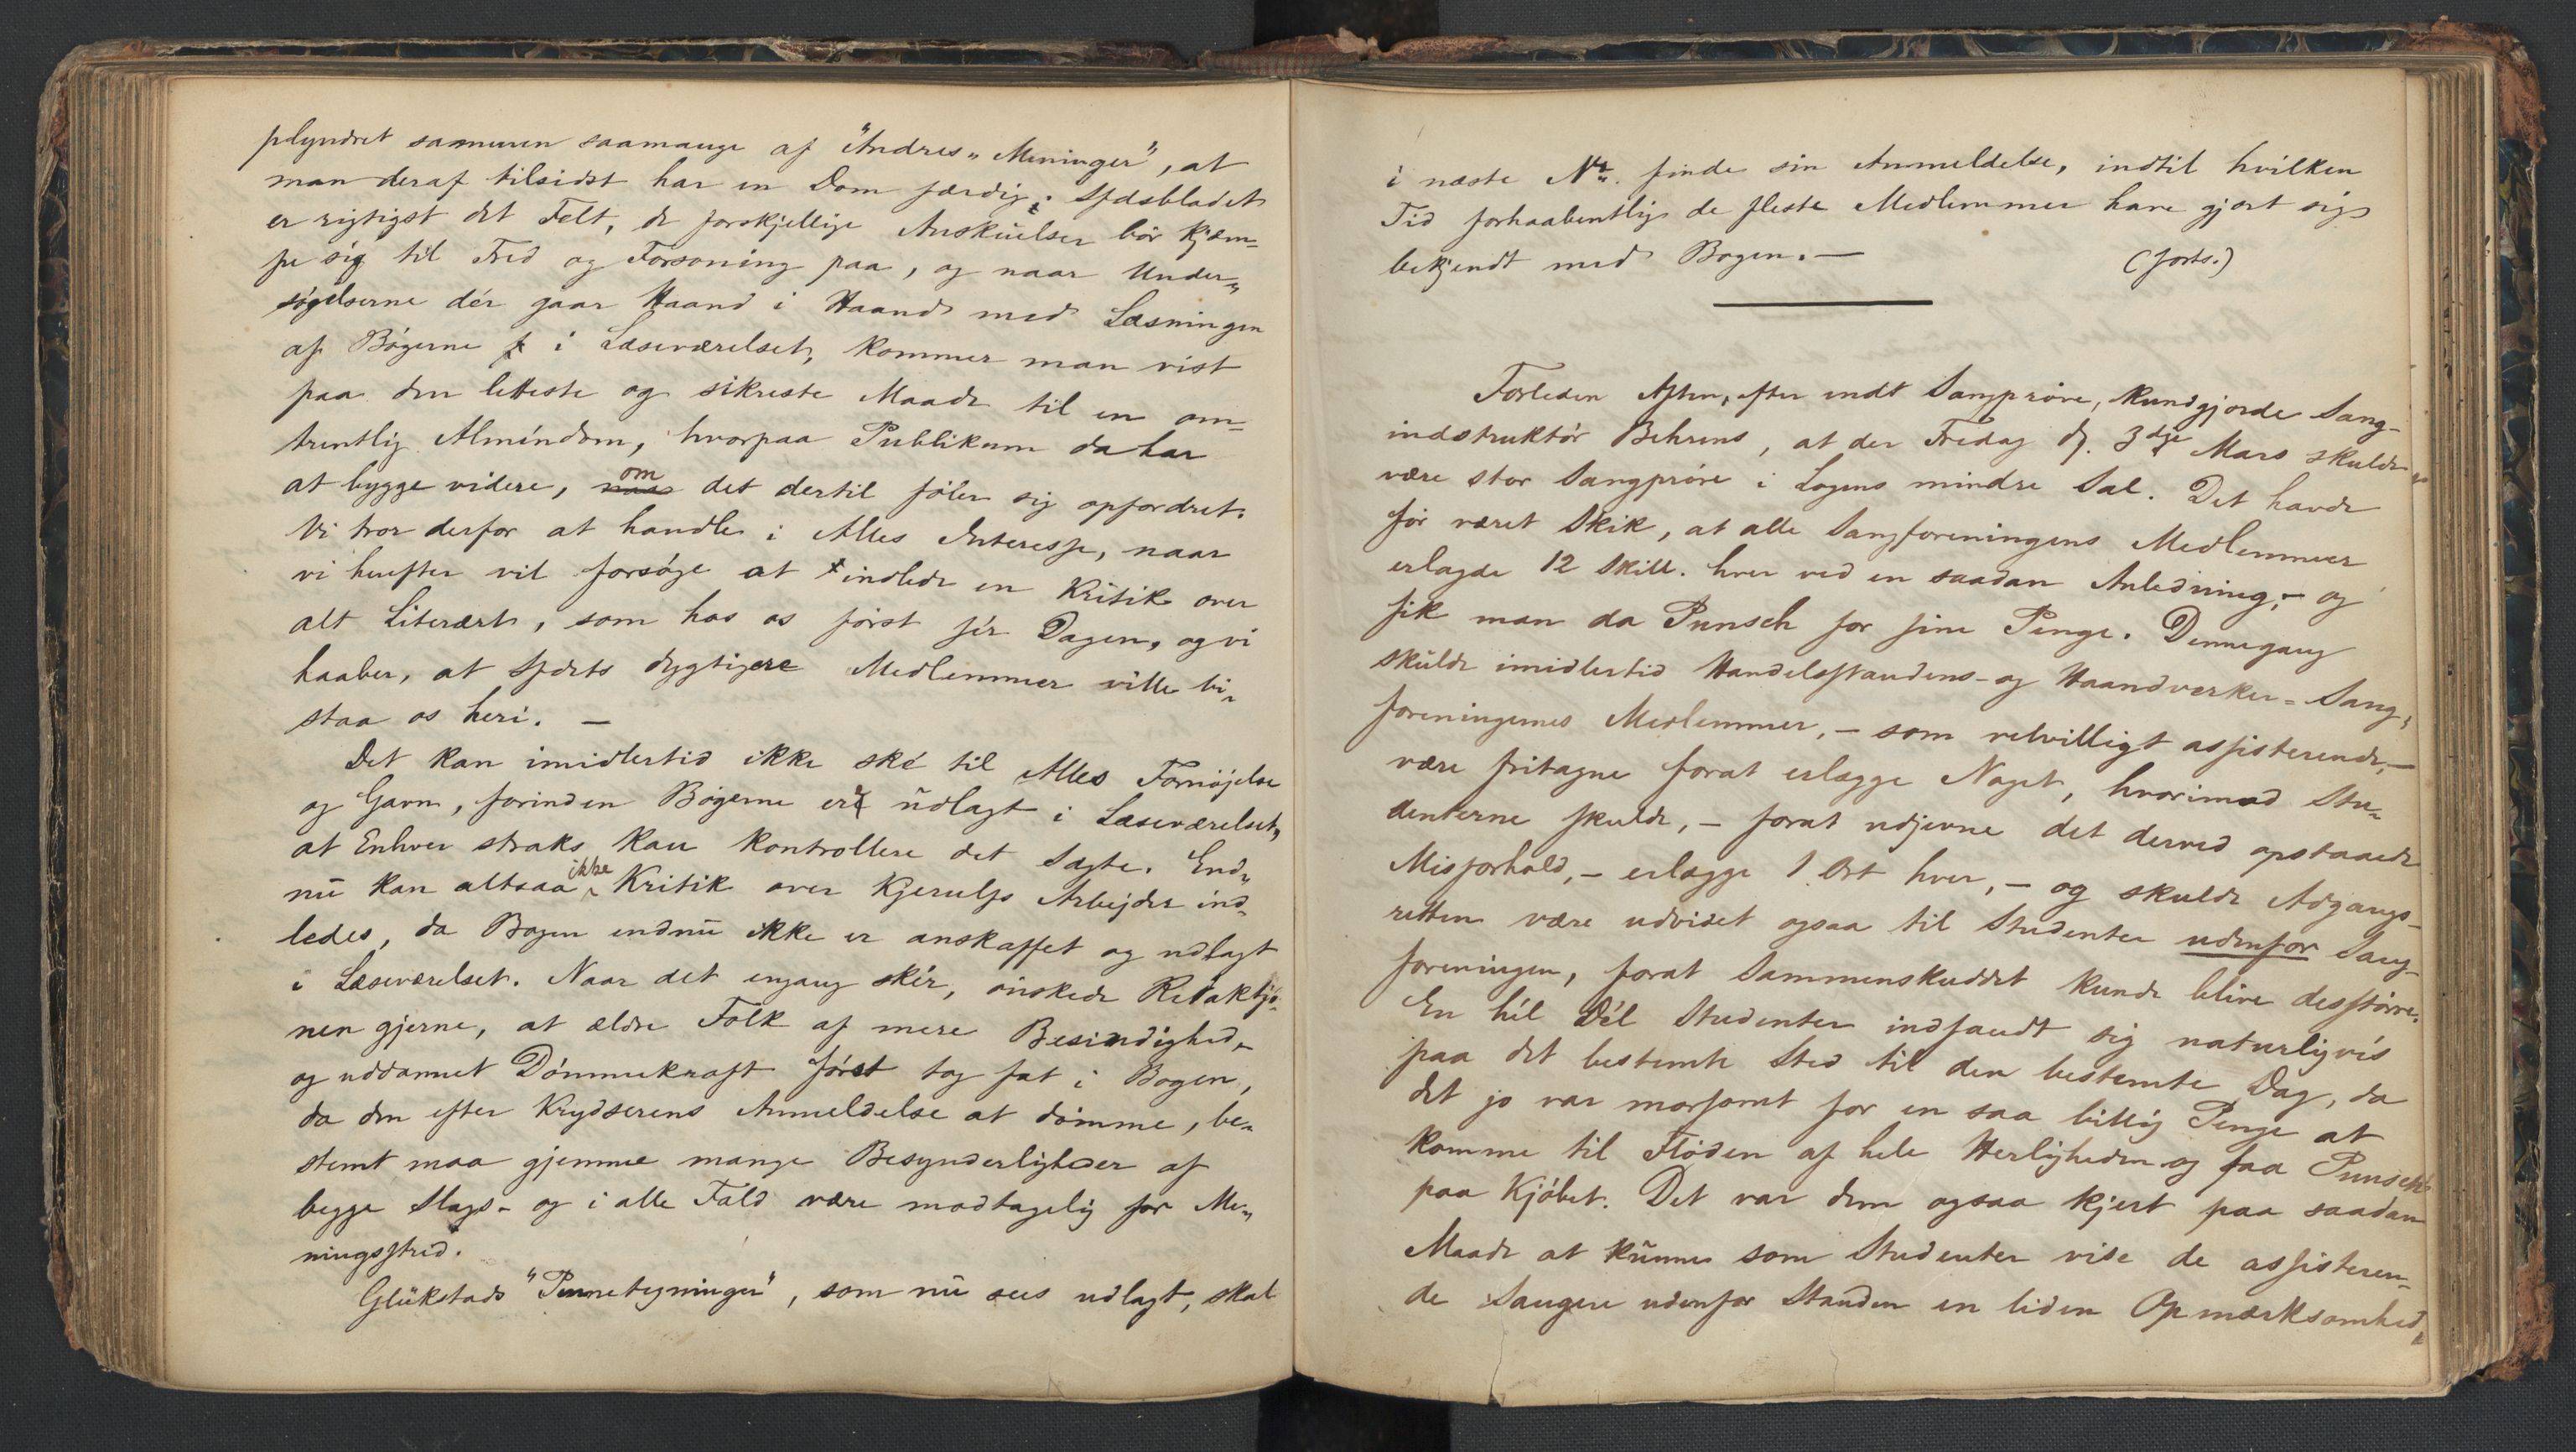 plyndret sammen saamange af "Andres" Meninger", at
man deraf tilsidst har en Dom færdig. Sfdsbladet
er rigtigst det Felt, de forskjellige Anskuelser bör kjæm-
pe sig til Fred og Forsoning paa, og naar Under-
sögelserne dér gaar Haand i Haand med Læsningen
af Bögerne i Læseværelset, kommer man vist
paa den letteste og sikreste Maade til en om-
trentlig Almindom, hvorpaa Publikum da har
at bygge videre, om det dertil föler sig opfordret.
Vi tror derfor at handle i Alles Interesse, naar
vi herefter vil forsöge at indlede en Kritik over
alt Literært, som hos os först sér Dagen, og vi
haaber, at Sfdets dygtigere Medlemmer ville bi-
staa os heri. —
Det kan imidlertid ikke ské til Alles Fornöjelse
og Gavn, forinden Bögerne er udlagt i Læseværelset,
at Enhver straks kan kontrollere det Sagte. End-
nu kan altsaa ikke Kritik over Kjerulfs Arbejder ind-
ledes, da Bogen endnu ikke er anskaffet og udlagt
i Læseværelset. Naar det engang skér, önskede Redaktjo-
nen gjerne, at ældre Folk af mere Besindighed
og uddannet Dömmekraft först tog fat i Bogen,
da den efter Krydserens Anmeldelse at dömme, be-
stemt maa gjemme mange Besynderligheder af
begge Slags - og i alle Fald være modtagelig for Me-
ningsstrid.
Glükstads "Pennetegninger", som nu sees udlagt, skal
i næste Nr. finde sin Anmeldelse, indtil hvilken
Tid forhaabentlig de fleste Medlemmer have gjort sig
bekjendt med Bogen. — (forts.)
Forleden Aften, efter endt Sangpröve, kundgjorde Sang-
indstruktör Behrens, at der Fredag d. 3dje Mars skulde
være stor Sangpröve i Logens mindre Sal. Det havde
för været Skik, at alle Sangforeningens Medlemmer
erlagde 12 Skill. hver ved en saadan Anledning, - og
fik man da Punsch for sine Penge. Dennegang
skulde imidlertid Handelsstandens- og Haandværker-Sang-
foreningernes Medlemmer, - som velvilligt assisterende, —
være fritagne forat erlægge Noget, hvorimod Stu-
denterne skulde, - forat udjevne det derved opstaaede
Misforhold, - erlægge 1 Ort hver, - og skulde Adgangs-
retten være udvidet ogsaa til Studenter udenfor Sang-
foreningen, forat Sammenskuddet kunde blive desstörre.
En hél Dél Studenter indfandt sig naturligvis
paa det bestemte Sted til den bestemte Dag, da
det jo var morsomt for en saa billig Penge at
komme til Flöden af hele Herligheden og faa Punsch
paa Kjöbet. Det var dem ogsaa kjert paa saadan
Maade at kunne som Studenter vise de assisteren-
de Sangere udenfor Standen en liden Opmærksomhed,